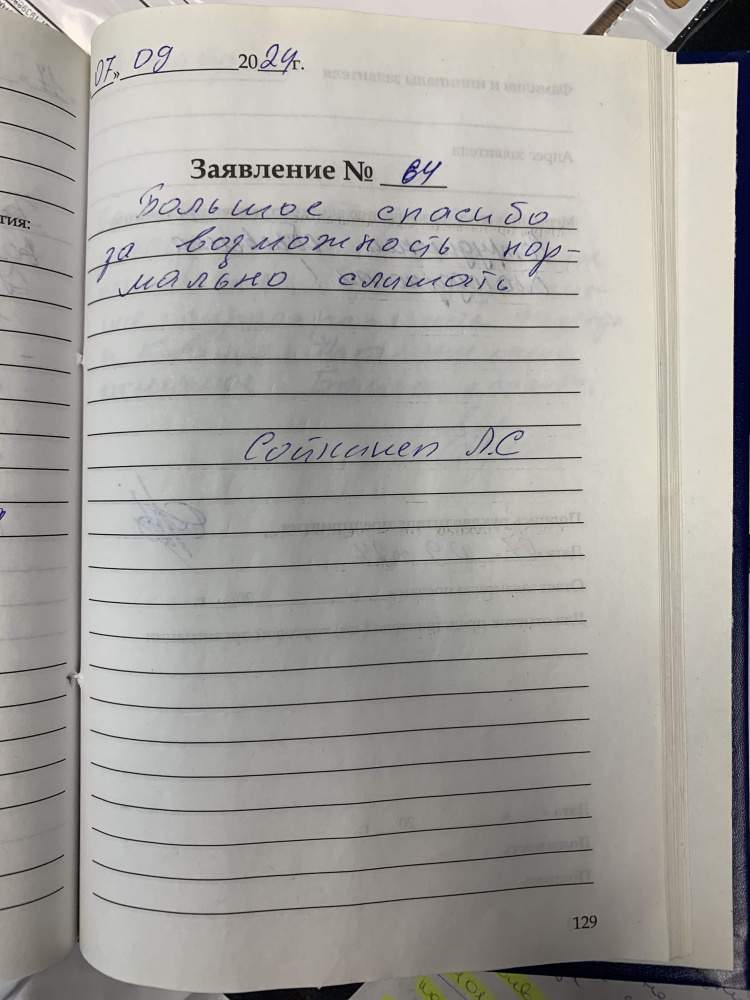 07 » 09 2024 г.
Заявление № 64
Большое спасибо
за возможность нор-
мально слишать
Л.С
129
тия: